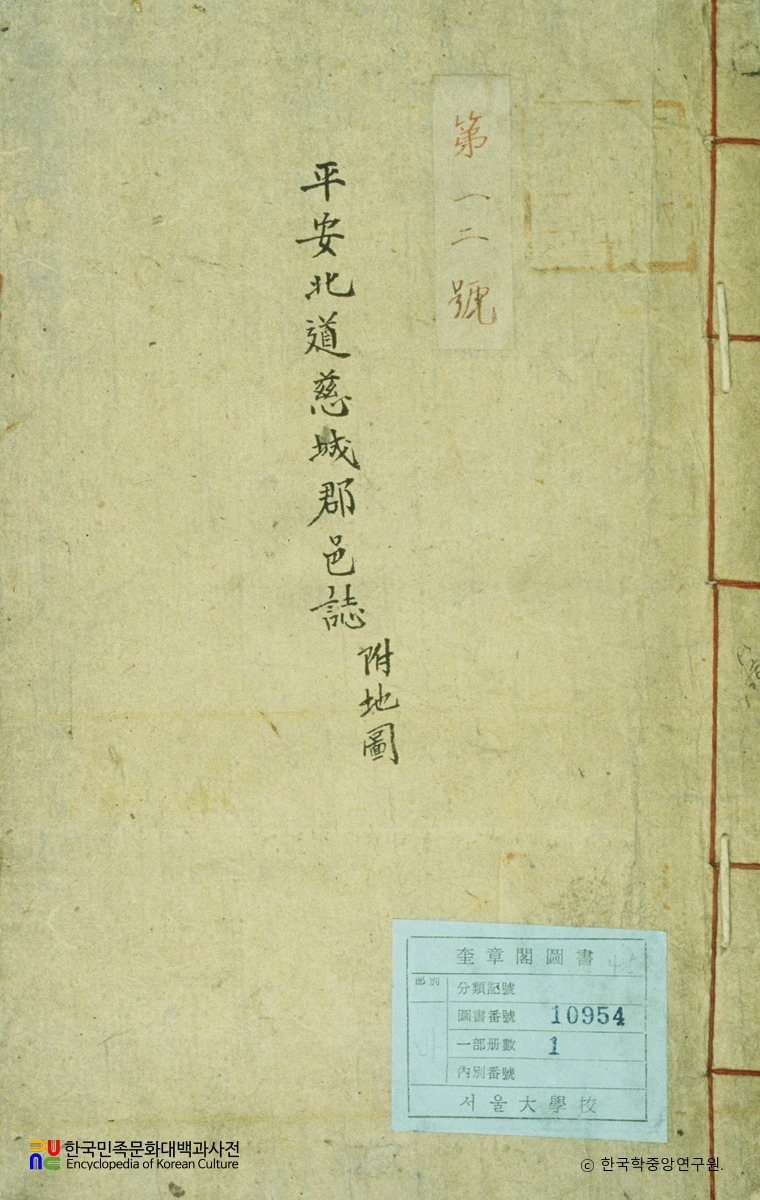 第一二號
平安北道慈城郡邑誌
附地圖
奎章閣圖書
部別
分類記號
圖書番號 10954
一部册數 1
內別番號
서울大學校
한국민족문화대백과사전
Encyclopedia of Korean Culture
© 한국학중앙연구원.